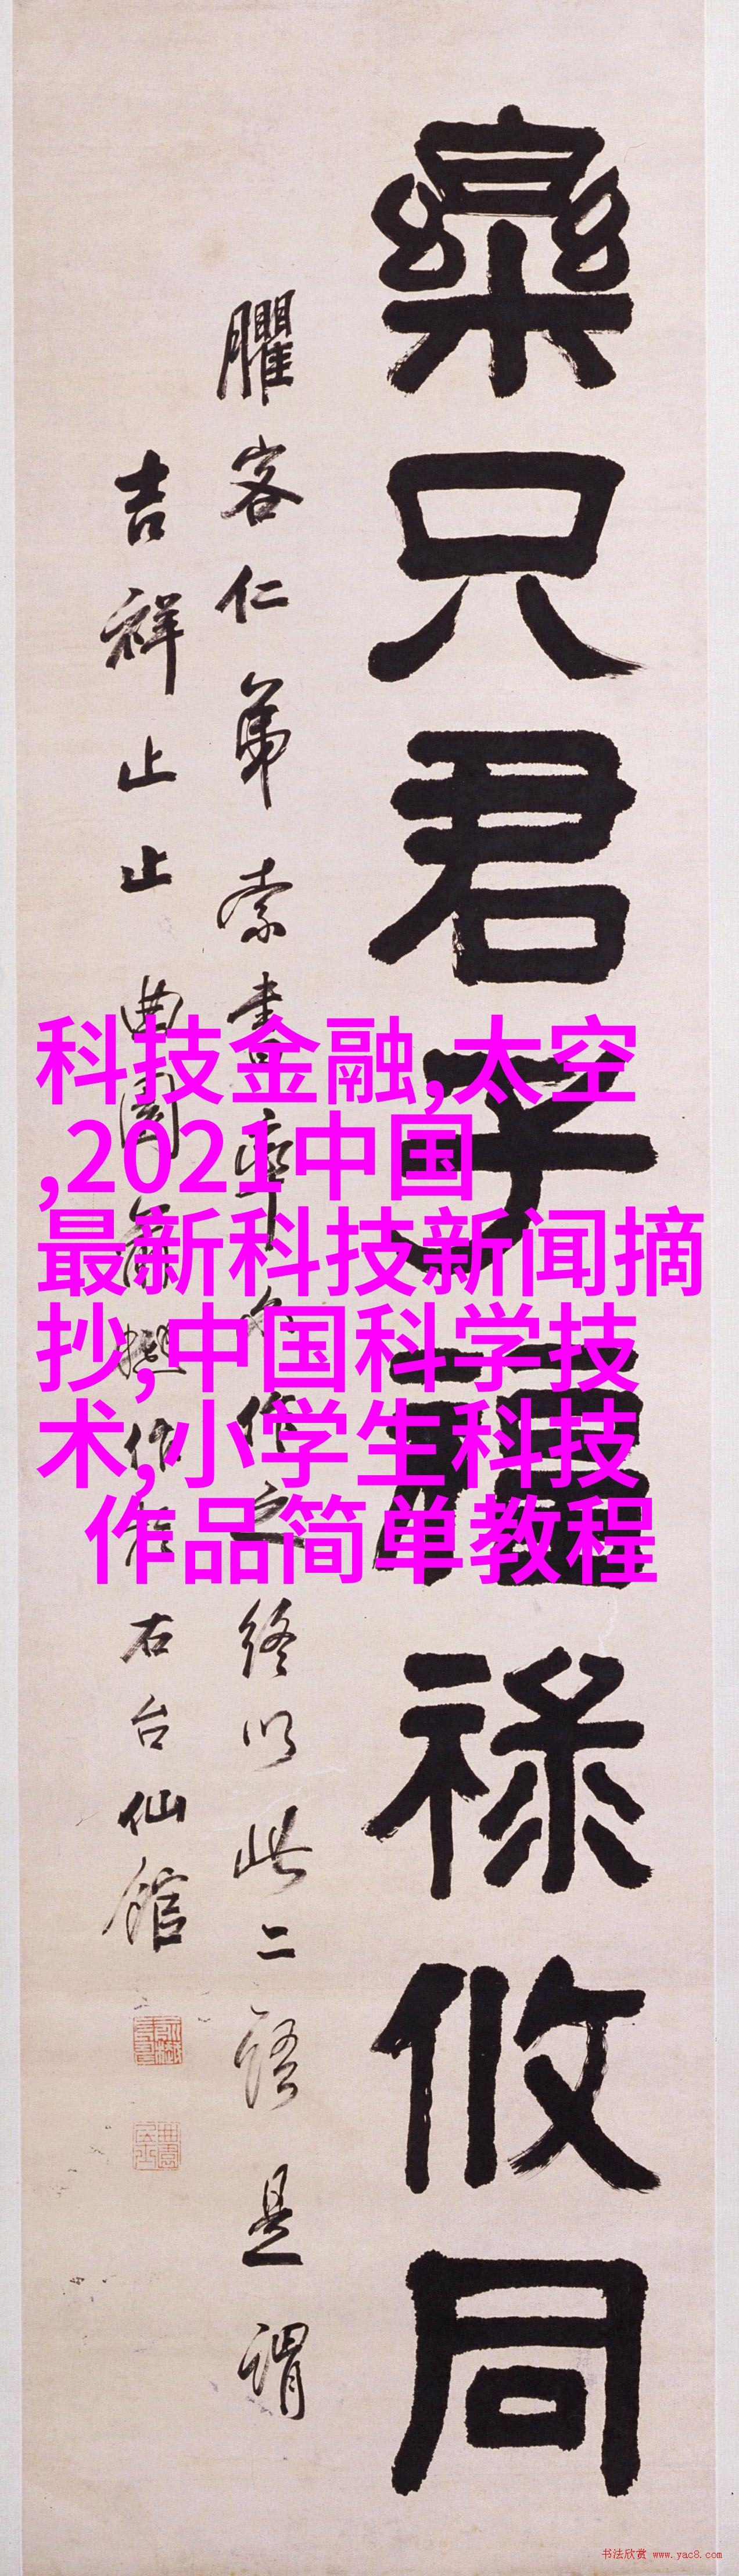 樂只君子福祿攸同
臞客仁弟索書率
終以此二語是謂
吉祥止止曲園
右台仙館
科技金融,太空
,2021中国
最新科技新闻摘
抄,中国科学技
术,小学生科技
作品简单教程
书法欣赏 www.yac8.com